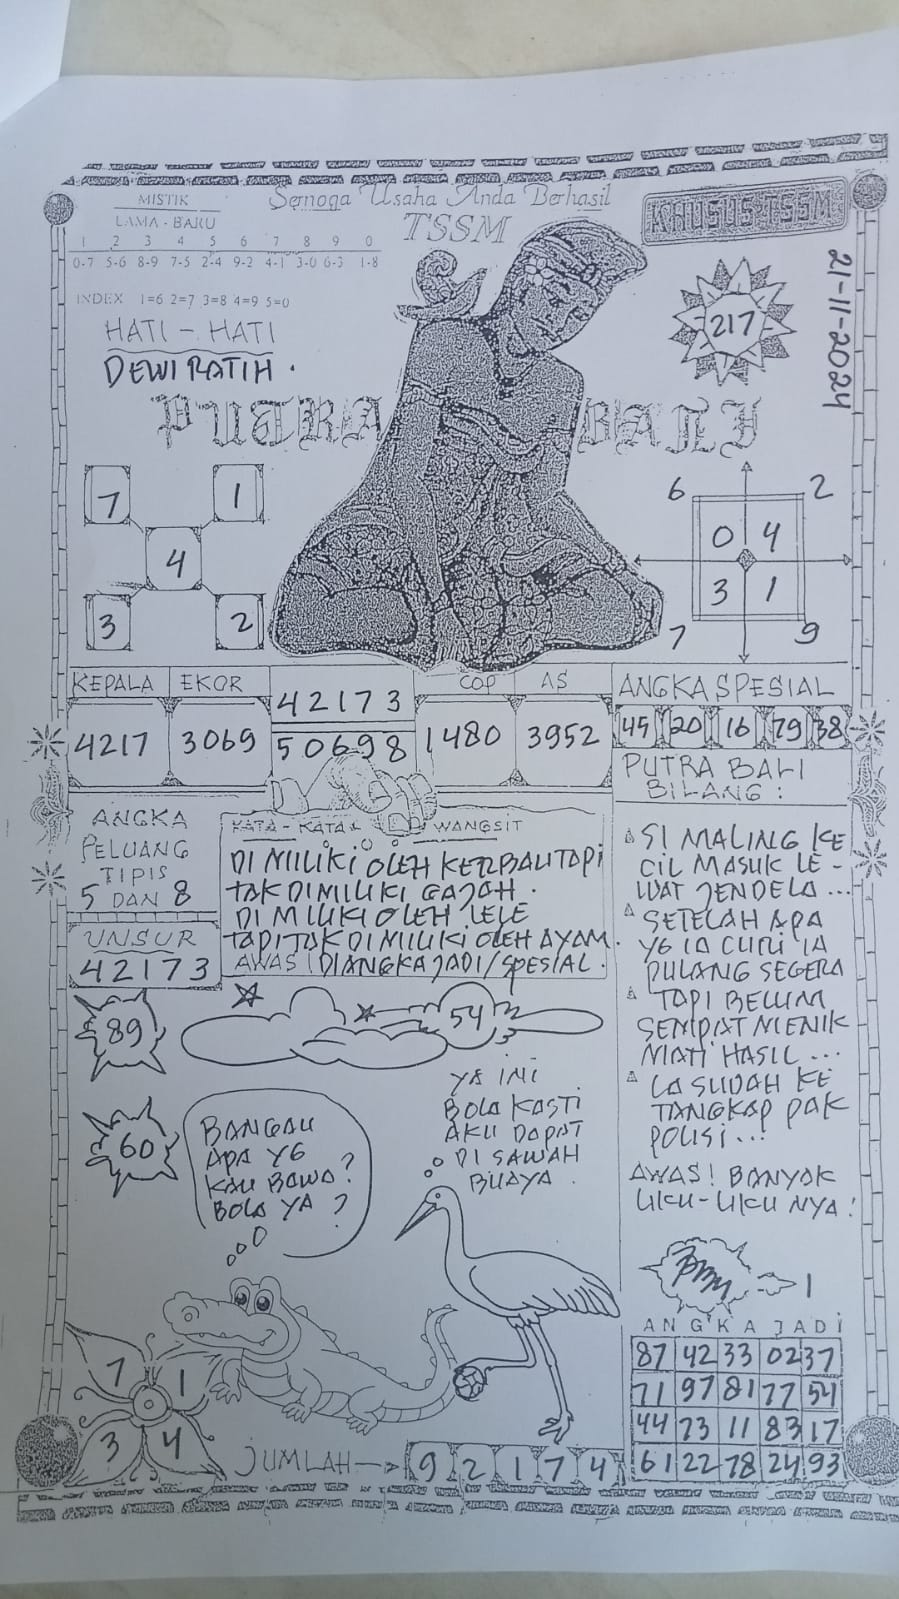 MISTIK
LAMA - BARU
1 2 3 4 5 6 7 8 9 0
0-7 5-6 8-9 7-5 2-4 9-2 4-1 3-0 6-3 1-8
INDEX 1=6 2=7 3=8 4=9 5=0
Semoga Usaha Anda Berhasil
TSSM
KHUSUS TSSM
21-11-2024
HATI - HATI
DEWI RATIH.
217
PUTRA BALI
7 1
4
3 2
6 2
0 4
3 1
7 9
KEPALA EKOR
4217 3069
42173
50698
COP AS
1480 3952
ANGKA SPESIAL
45 20 16 79 38
ANGKA
PELUANG
TIPIS
5 DAN 8
UNSUR
42173
KATA - KATA WANGSIT
DI MILIKI OLEH KERBAU TAPI
TAK DI MILIKI GAJAH.
DI MILIKI OLEH LELE
TAPI TAK DI MILIKI OLEH AYAM.
AWAS! DI ANGKA JADI/SPESIAL.
PUTRA BALI
BILANG :
SI MALING KE
CIL MASUK LE-
WAT JENDELA...
SETELAH APA
YG IA CURI IA
PULANG SEGERA
TAPI BELUM
SEMPAT MENIK
MATI HASIL...
IA SUDAH KE
TANGKAP PAK
POLISI...
AWAS! BANYAK
LIKU-LIKU NYA!
89
54
60
BANGAU
APA YG
KAU BAWA?
BOLA YA ?
YA INI
BOLA KASTI
AKU DAPAT
DI SAWAH
BUAYA.
1
ANGKA JADI
87 42 33 02 37
71 97 81 77 54
44 73 11 83 17
61 22 78 24 93
7 1
3 4
JUMLAH → 9 2 1 7 4